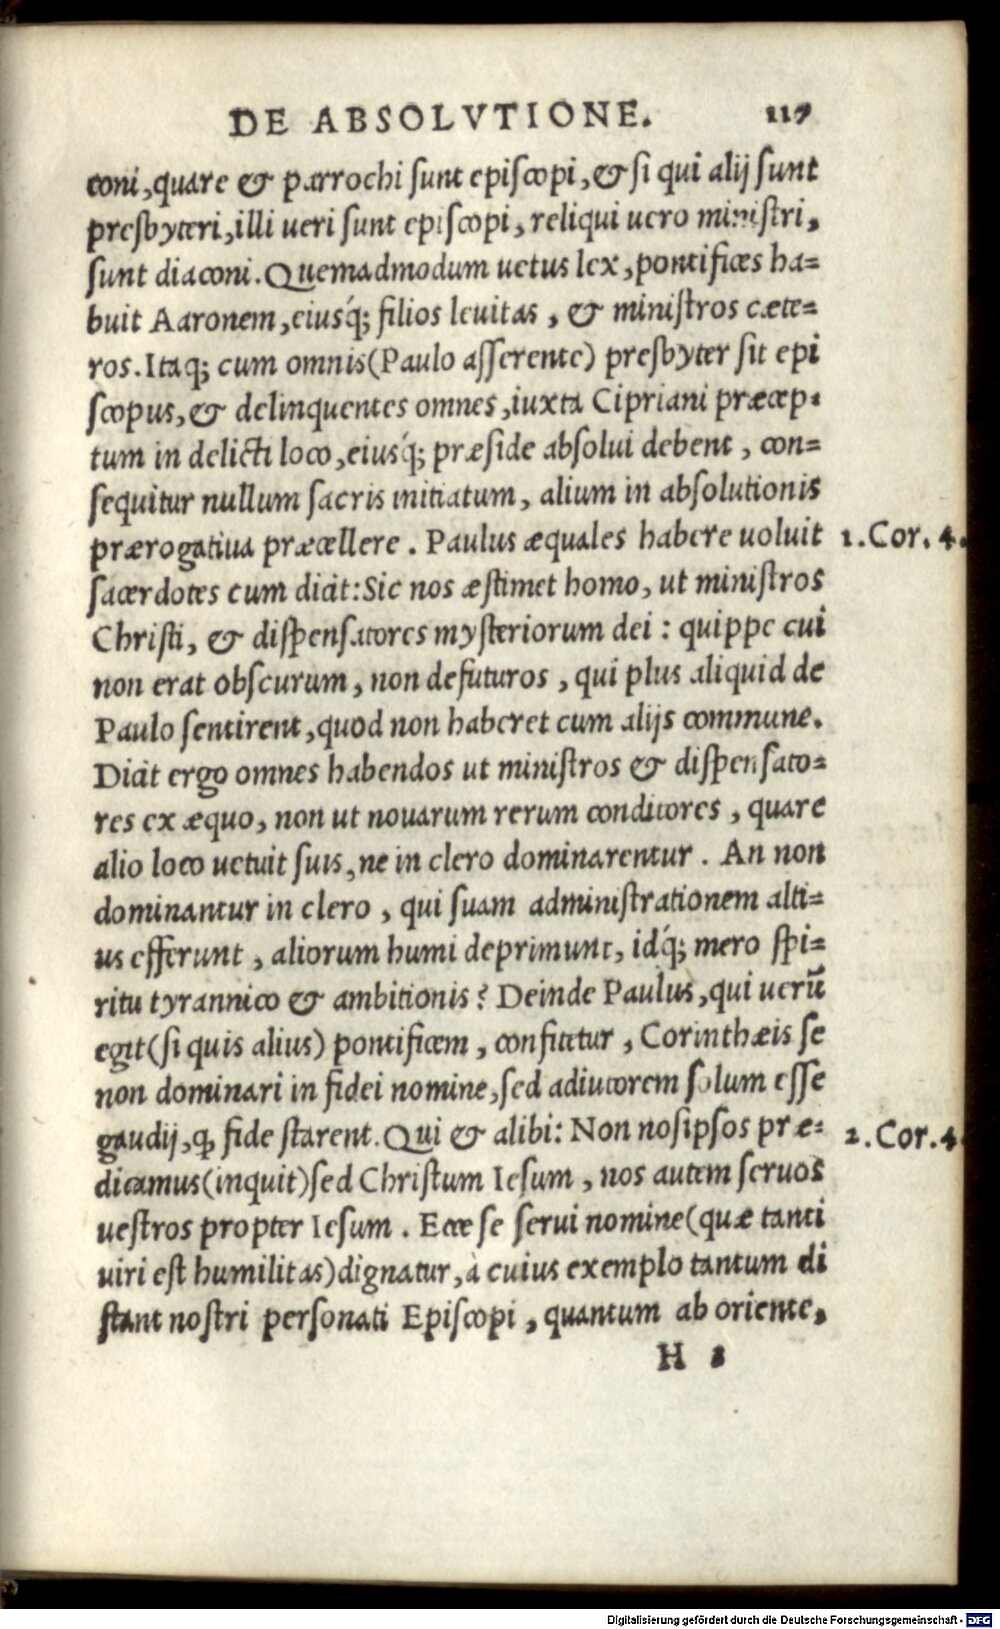 DE ABSOLVTIONE. 117
coni, quare & parrochi sunt episcopi, & si qui alij sunt
presbyteri, illi ueri sunt episcopi, reliqui uero ministri,
sunt diaconi. Quemadmodum uetus lex, pontifices ha=
buit Aaronem, eiusq́; filios leuitas, & ministros cæte=
ros. Itaq; cum omnis (Paulo asserente) presbyter sit epi
scopus, & delinquentes omnes, iuxta Cipriani præcep=
tum in delicti loco, eiusq́; præside absolui debent, con=
sequitur nullum sacris initiatum, alium in absolutionis
prærogatiua præcellere. Paulus æquales habere uoluit
1. Cor. 4.
sacerdotes cum dicit: Sic nos æstimet homo, ut ministros
Christi, & dispensatores mysteriorum dei: quippe cui
non erat obscurum, non defuturos, qui plus aliquid de
Paulo sentirent, quod non haberet cum alijs commune.
Dicit ergo omnes habendos ut ministros & dispensato=
res ex æquo, non ut nouarum rerum conditores, quare
alio loco uetuit suis, ne in clero dominarentur. An non
dominantur in clero, qui suam administrationem alti=
us efferunt, aliorum humi deprimunt, idq́; mero spi=
ritu tyrannico & ambitionis? Deinde Paulus, qui uerũ
egit (si quis alius) pontificem, confitetur, Corinthæis se
non dominari in fidei nomine, sed adiutorem solum esse
gaudij, ꝙ fide starent. Qui & alibi: Non nosipsos præ=
2. Cor. 4.
dicamus (inquit) sed Christum Iesum, nos autem seruos
uestros propter Iesum. Ecce se serui nomine (quæ tanti
uiri est humilitas) dignatur, à cuius exemplo tantum di
stant nostri personati Episcopi, quantum ab oriente,
H
Digitalisierung gefördert durch die Deutsche Forschungsgemeinschaft - DFG